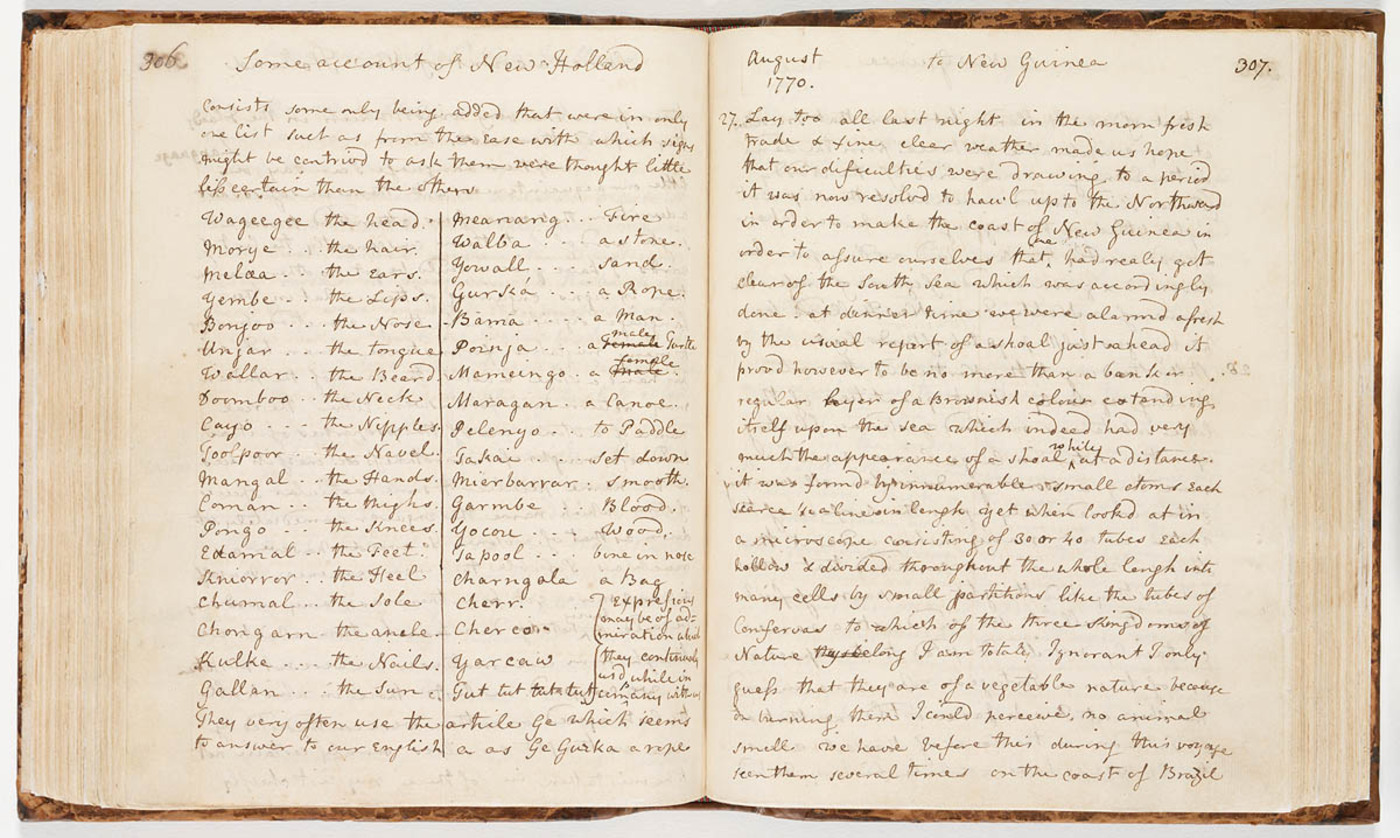 306
Some account of New Holland
Consists some only being added that were in only
one list such as from the ease with which signs
might be contrivd to ask them were thought little
less certain than the others
Wageegee the head.
Morye .. the hair.
Melea .. the Ears.
Yembe .. the Lips.
Bonjoo ... the Nose
Unjar ... the tongue
Wallar .. the Beard
Doomboo .. the Neck
Cayo ... the Nipples.
Toolpoor .. the Navel.
Mangal .. the Hands.
Coman .. the thighs.
Pongo .. the Knees.
Edamal .. the Feet.
Kniorror .. the Heel
Chumal .. the Sole
Chongarn the ancle.
Kulke ... the Nails.
Gallan ... the Sun.
Meanang ... Fire
Walba ... a stone.
Yowall ... sand.
Gurká ... a Rope.
Bama .... a Man.
Poinja ... a male Female Turtle
Mameingo . a female male .
Maragan .. a Canoe.
Pelenyo ... to Paddle
Takai .... set down
Mierbarrar . smooth.
Garmbe ... Blood.
Yocou .... Wood.
Tapool ... bone in nose
Charngala a Bag
Cherr.
Cherco.
Yarcaw
Tut tut tut tut
Expressions
maybe of ad=
miration which
they continualy
usd while in
company with us
They very often use the article Ge which seems
to answer to our English a as Ge Gurka a rope
August
1770.
to New Guinea
307.
27. Lay too all last night in the morn fresh
trade & fine clear weather made us hope
that our difficulties were drawing to a period
it was now resolvd to hawl up to the Northward
in order to make the coast of New Guinea in
order to assure ourselves that we had realy got
clear of the South Sea which was accordingly
done. at dinner time we were alarmd afresh
by the usual report of a shoal just ahead it
provd however to be no more than a bank or
regular layer of a Brownish colour extending
itself upon the sea which indeed had very
much the appearance of a shoal while at a distance.
it was formd by innumerable small atoms each
scarce ½ a line in lengh yet when looked at in
a microscope consisting of 30 or 40 tubes each
hollow & divided throughout the whole lengh into
many cells by small partitions like the tubes of
Confervas to which of the three Kingdoms of
Nature they belong I am totaly Ignorant I only
guess that they are of a vegetable nature because
on burning them I could perceive no animal
smell we have before this during this voyage
seen them several times on the coast of Brazil